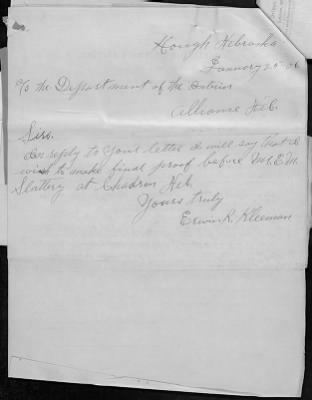 Hough Nebraska
January 25 - 06
c/o the Department of the Interior
Alliance Neb.
Sirs.
In reply to your letter I will say that I
wish to make final proof before M.E.M.
Slattery at Chadron Neb.
Yours truly
Erwin R. Kleeman